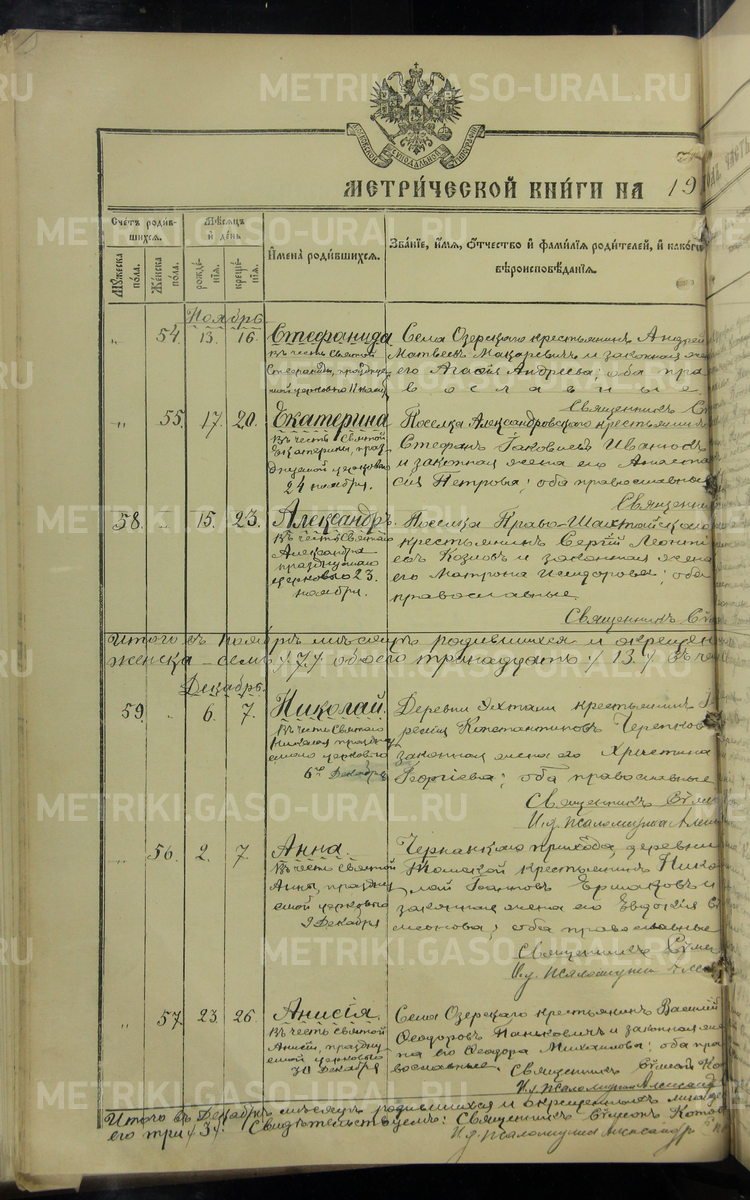 МЕТРИ́ЧЕСКОЙ КНИ́ГИ НА 19
Счетъ роди́вшихся.
Мѣсяцъ и день
Имена роди́вшихся.
Зва́нїе, и́мя, ѻ҆́тчество и фами́лїя роди́телей, и како́гѡ вѣроисповѣ́данїя.
Мꙋжеска по́ла.
Же́нска по́ла.
рожде́нїя.
креще́нїя.
Ноябрь
„ 54. 13. 16. Стефанида
въ честь Святой
Стефаниды, праздну
мой церковью 11 нояб
Села Озерскаго крестьянинъ Андрей
Матвеев Макаревичъ и законная жена
его Агафiя Андреева; оба пра
вославные
Священникъ
„ 55. 17. 20. Екатерина
въ честь Святой
Екатерины, праз
днуемой церковью
24 ноября.
Поселка Александровского крестьянинъ
Стефанъ Iаковлевъ Ивановъ
и законная жена его Анаста
сiя Петрова; оба православные
Священник
58. 15. 23. Александръ.
въ честь Святаго
Александра
празднуемаго
церковью 23
ноября.
Поселка Право-Шахтайскаго
крестьянинъ Сергiй Леонтi
евъ Козловъ и законная жена
его Матрона Исидорова; оба
православные
Священникъ
Итого въ ноябрѣ мѣсяцѣ родившихся и окрещен
женска – семь /7/ обоего тринадцать /13/
Декабрь
59. „ 6. 7. Николай.
въ честь Святаго
Николая праздну
емаго церковью
6го декабря
Деревни Яхтали крестьянинъ
Константиновъ Черепков
законная жена его Христина
Георгiева; оба православные
Священникъ
И.д. псаломщика
„ 56. 2. 7. Анна.
въ честь Святой
Анны, праздну
емой церковью
9 декабря
прихода, деревни
крестьянинъ Нико
лай Iоанновъ Ермаковъ и
законная жена его Евдокiя Си
меонова; оба православные
Священникъ
И.д. псаломщика
„ 57. 23. 26. Анисiя.
въ честь Святой
Анисiи, празdну
емой церковью
30 декабря
Села Озерскаго крестьянинъ Василiй
Ѳеодоровъ Панъковичъ и законная же
на его Ѳеодора Михаилова; оба пра
вославные. Священникъ
И.д. псаломщика Александ
Итого въ Декабрѣ мѣсяцѣ родившихся и окрещенныхъ
его три /3/. Свидетельствуемъ: Священникъ
И.д. псаломщика Александръ
METRIKI.GASO-URAL.RU